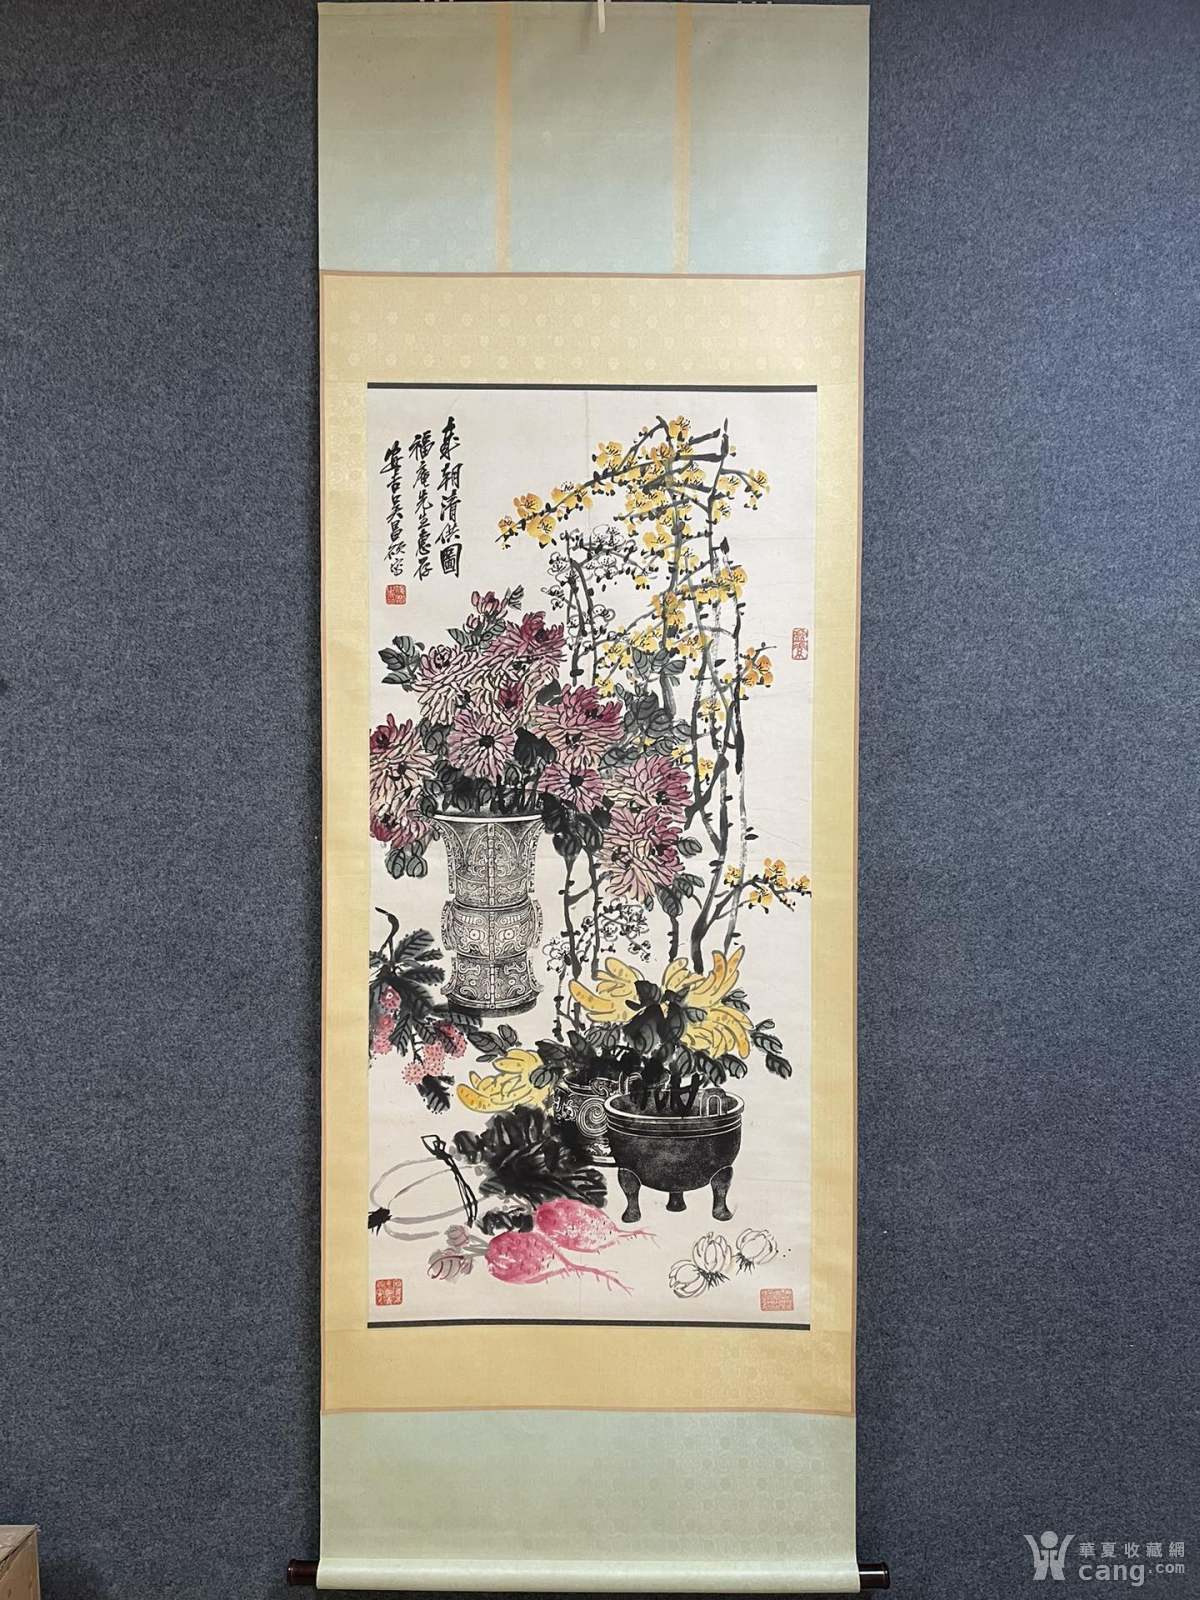 歲朝清供圖
福庵先生惠存
安吉吴昌碩寫
華夏收藏網
cang.com